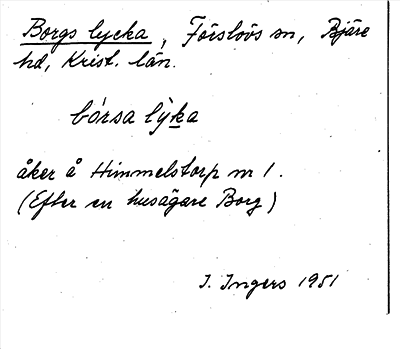 Borgs lycka, Förslövs sn, Bjäre
hd, Krist. län.
bórsa lỳka
åker å Himmelstorp nr 1.
(Efter en husägare Borg)
I. Ingers 1951